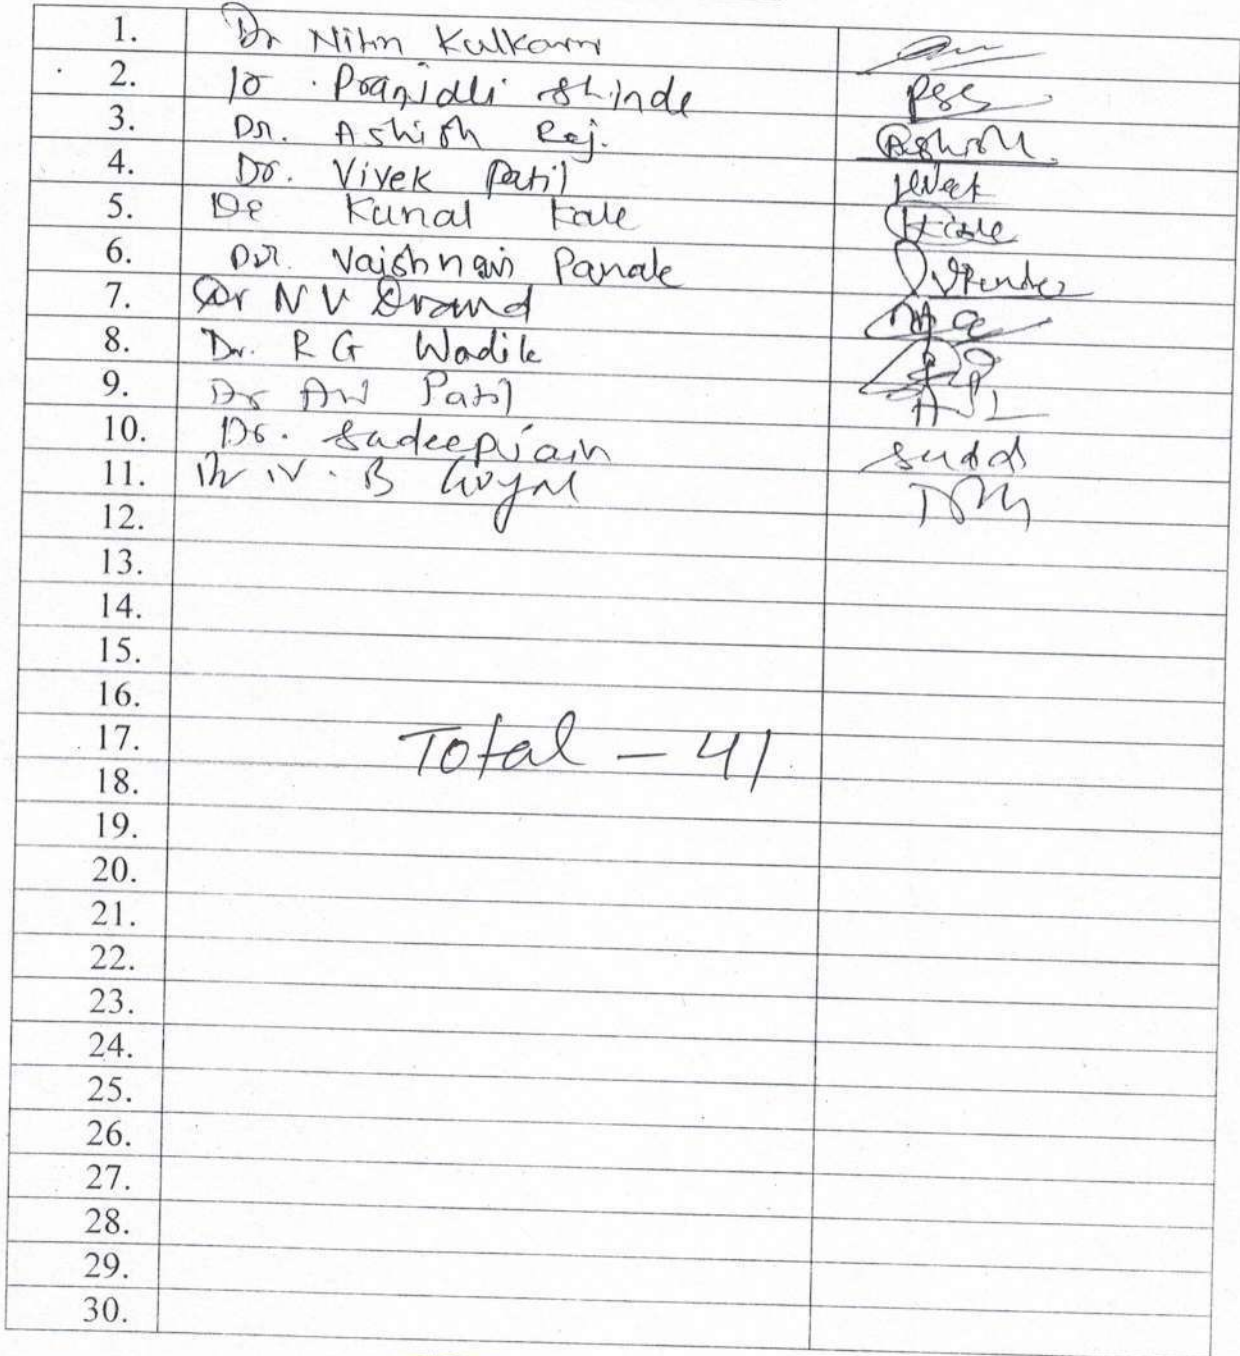 1. Dr Nitin Kulkarni
2. Dr. Pranjali Shinde PSS
3. Dr. Ashish Raj. Ashish
4. Dr. Vivek Patil Vivek
5. Dr Kunal Kale Kale
6. Dr. Vaishnavi Panale
7. Dr N V
8. Dr. R G Wadile
9. Dr AW Patil
10. Dr. Sudeep Jain
11. Dr N. B Goyal
12.
13.
14.
15.
16.
17. Total - 41
18.
19.
20.
21.
22.
23.
24.
25.
26.
27.
28.
29.
30.